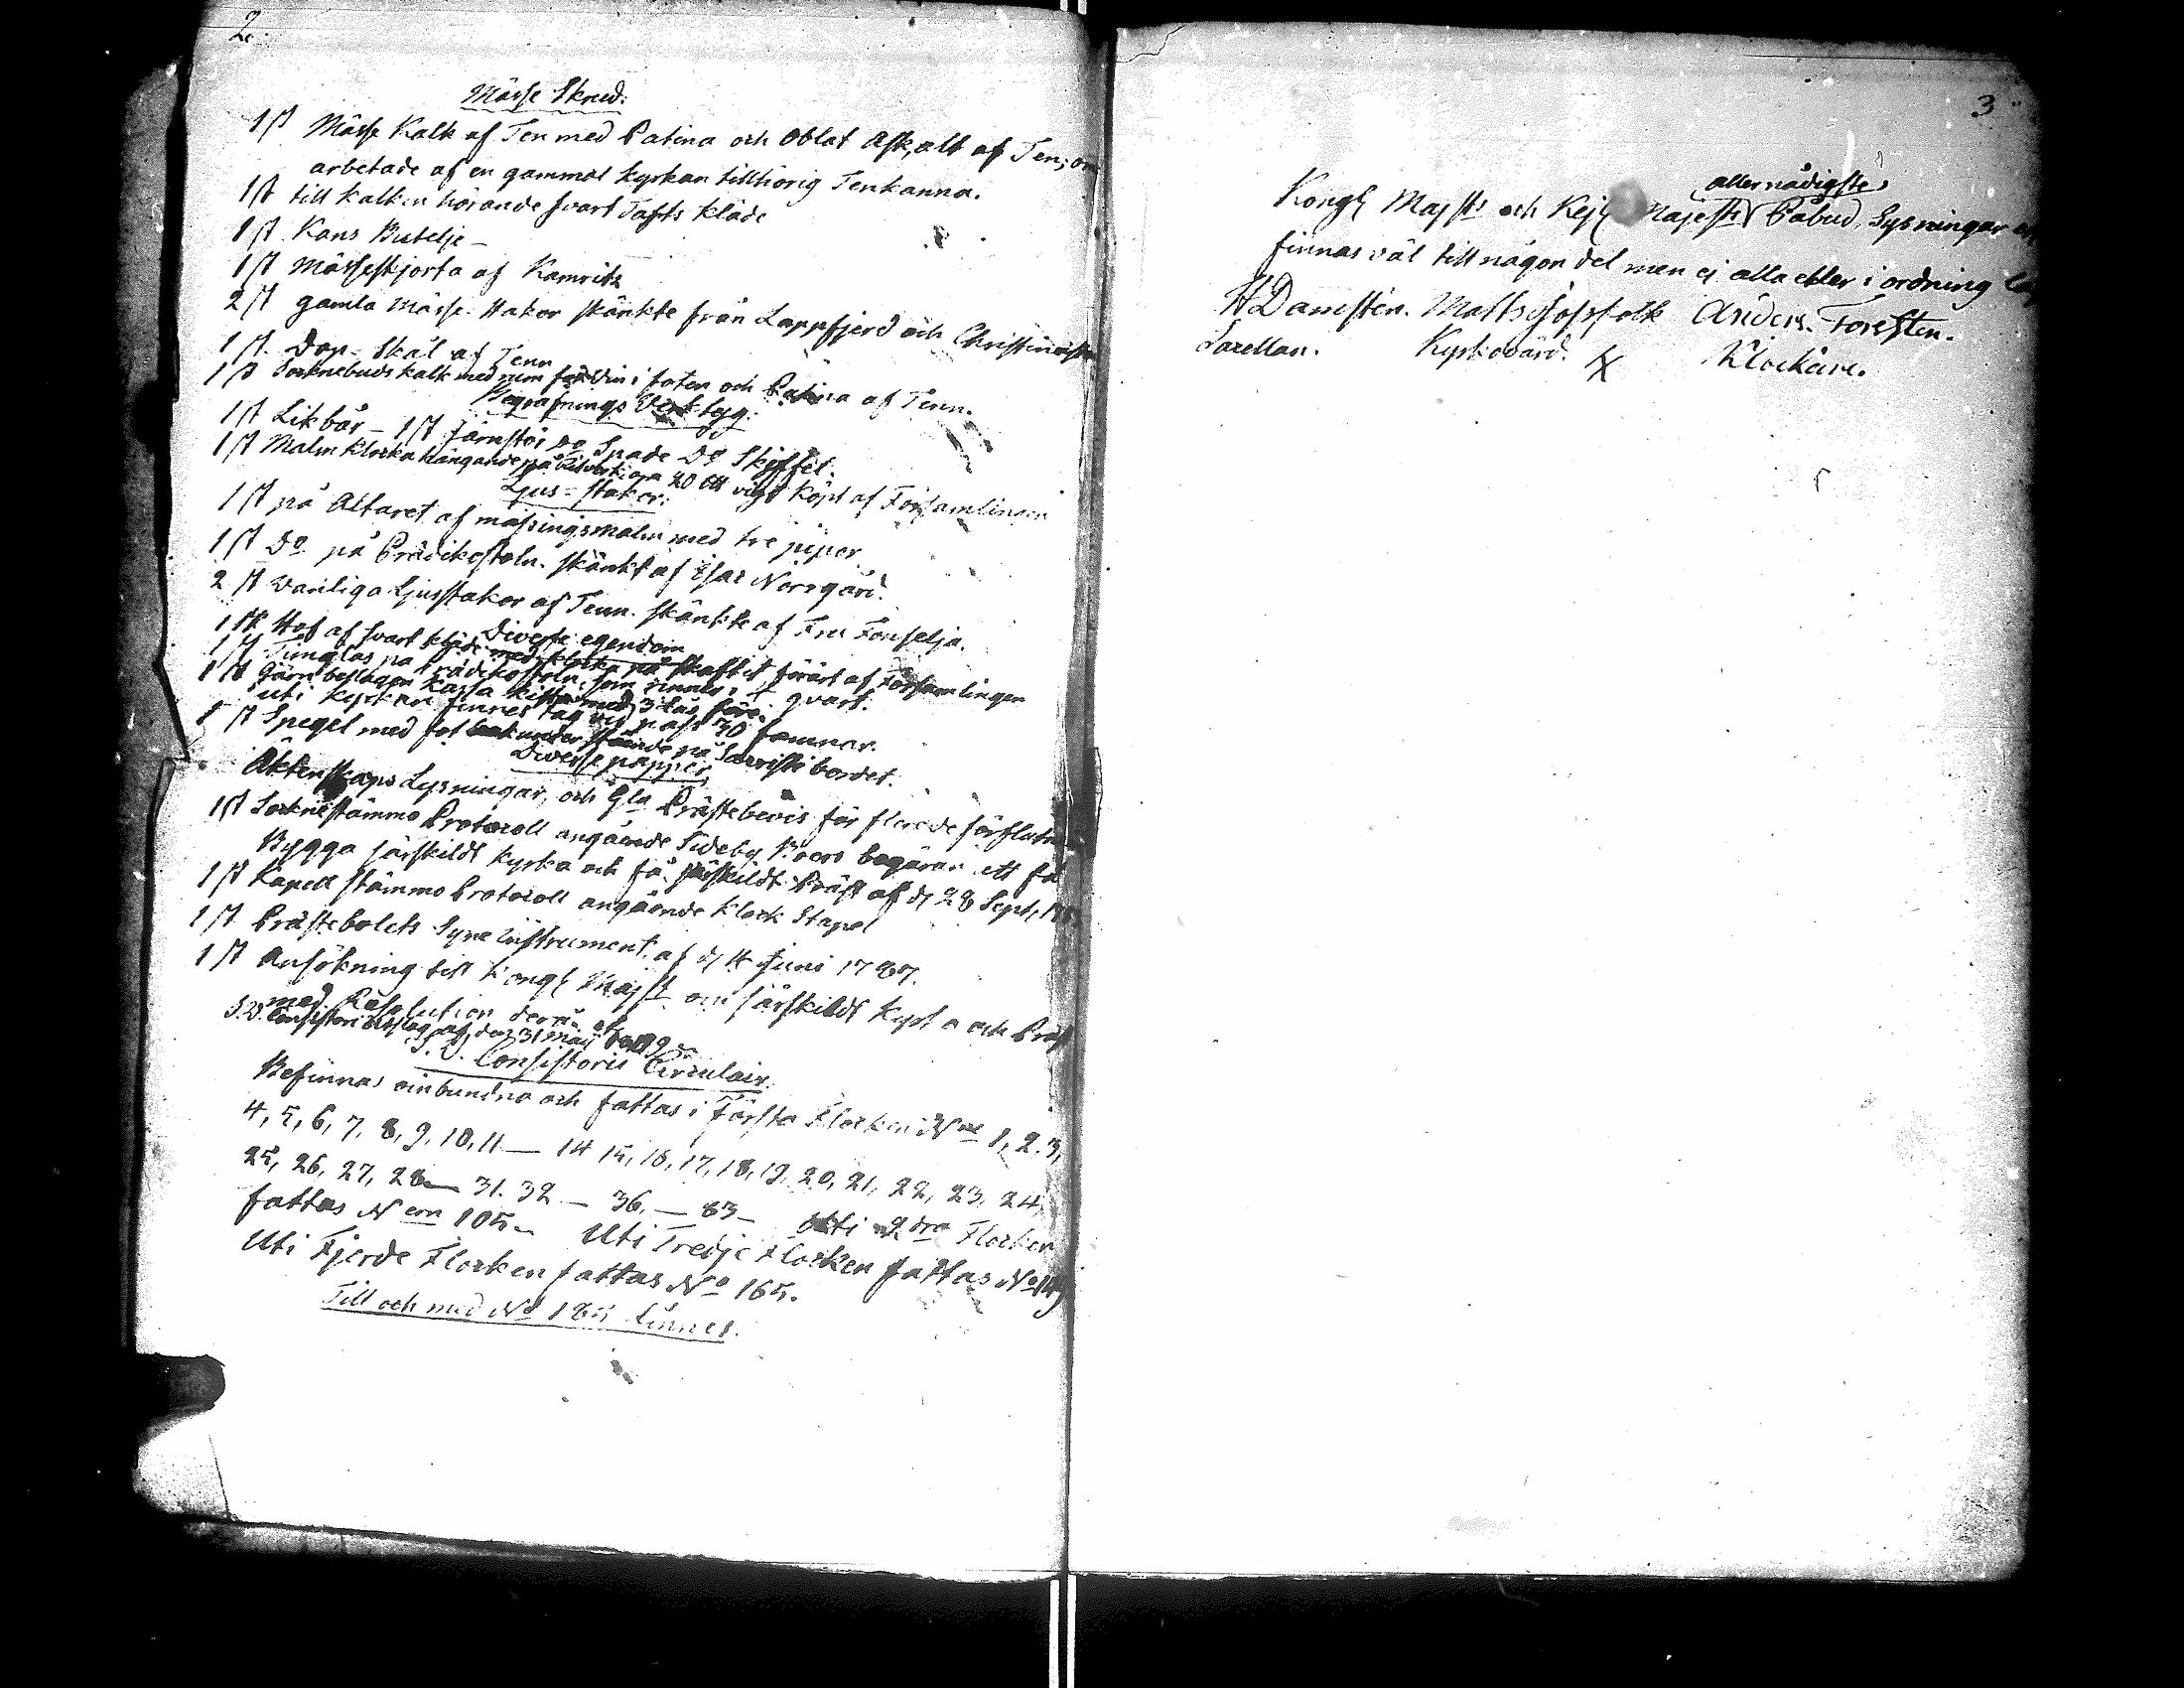 2.
Mässe Skrud.
1 st Mässe Kalk af Ten med Patina och Oblat Ask, alt af Ten; om
arbetade af en gammal kyrkan tillhörig Tenkanna.
1 st till kalken hörande svart Tafts kläde
1 st Kans Butelje
1 st Mässeskjorta af Kamrits
2 st gamla Mässe-Hakor skänkte från Lappfjerd och
1 st. Dop-Skål af Tenn
1 st Socknebuds kalk med rum för Vin i foten och Patina af Tenn.
Begrafnings Verktyg.
1 st Likbår - 1 st Järnstör Do Spade Do Skyffel.
1 st Malm Klocka hängande på 20 vigt köpt af Församlingen
Ljus-stakar:
1 st på Altaret af mässingsmalm med tre piper
1 st Do på Prädikostoln. skänkt af Norrgård.
2 st vanliga Ljusstakar af Tenn. skänkte af Fru Fonselja.
Diverse egendom
1 st Hof af svart kläde med klocka på skaftet förärt af Församlingen
1 st Timglas på Prädikostoln, som rinner 1 qvart.
1 st Järn beslagen Kassa kista med 3 lås före.
uti kyrkan finnes tåg vid pass 30 famnar.
1 st Spegel med fot stående på Sacristi bordet.
Diverse papper
Äktenskaps Lysningar, och Gla Prästebevis för flerede förflutna
1 st Socknestämmo Protocoll angående Sideby Boers begäran att få
Bygga särskildt kyrka och få särskildt Präst af d 28 Sept.
1 st Kapell stämmo Protocoll angående Klock Stapel
1 st Prästebolets Syne instrument, af d 4 Juni 1787.
1 st Ansökning till Kongl Majst om särskildt Kyrka och Präst
med Resolution derå
S.V. Consistorii af den 31 Maij
S. V. Consistorii Circulair.
Befinnas oinbundna och fattas i Första Flocken Nne 1, 2. 3,
4, 5, 6, 7, 8, 9, 10, 11 — 14 15, 16, 17, 18, 19, 20, 21, 22, 23, 24,
25, 26, 27, 28 — 31. 32 — 36, — 83 — Uti 2dra Flocken
fattas N 105. Uti Tredje Flocken fattas No 149
Uti Fjerde Flocken fattas No 165.
Till och med No 185 finnes.
3
allernådigste
Kongl Majsts och Kejs Majests Påbud, Lysningar
finnas väl till någon del men ej alla eller i ordning
Matts Anders Forsten.
Kyrkovärd. Klockare.